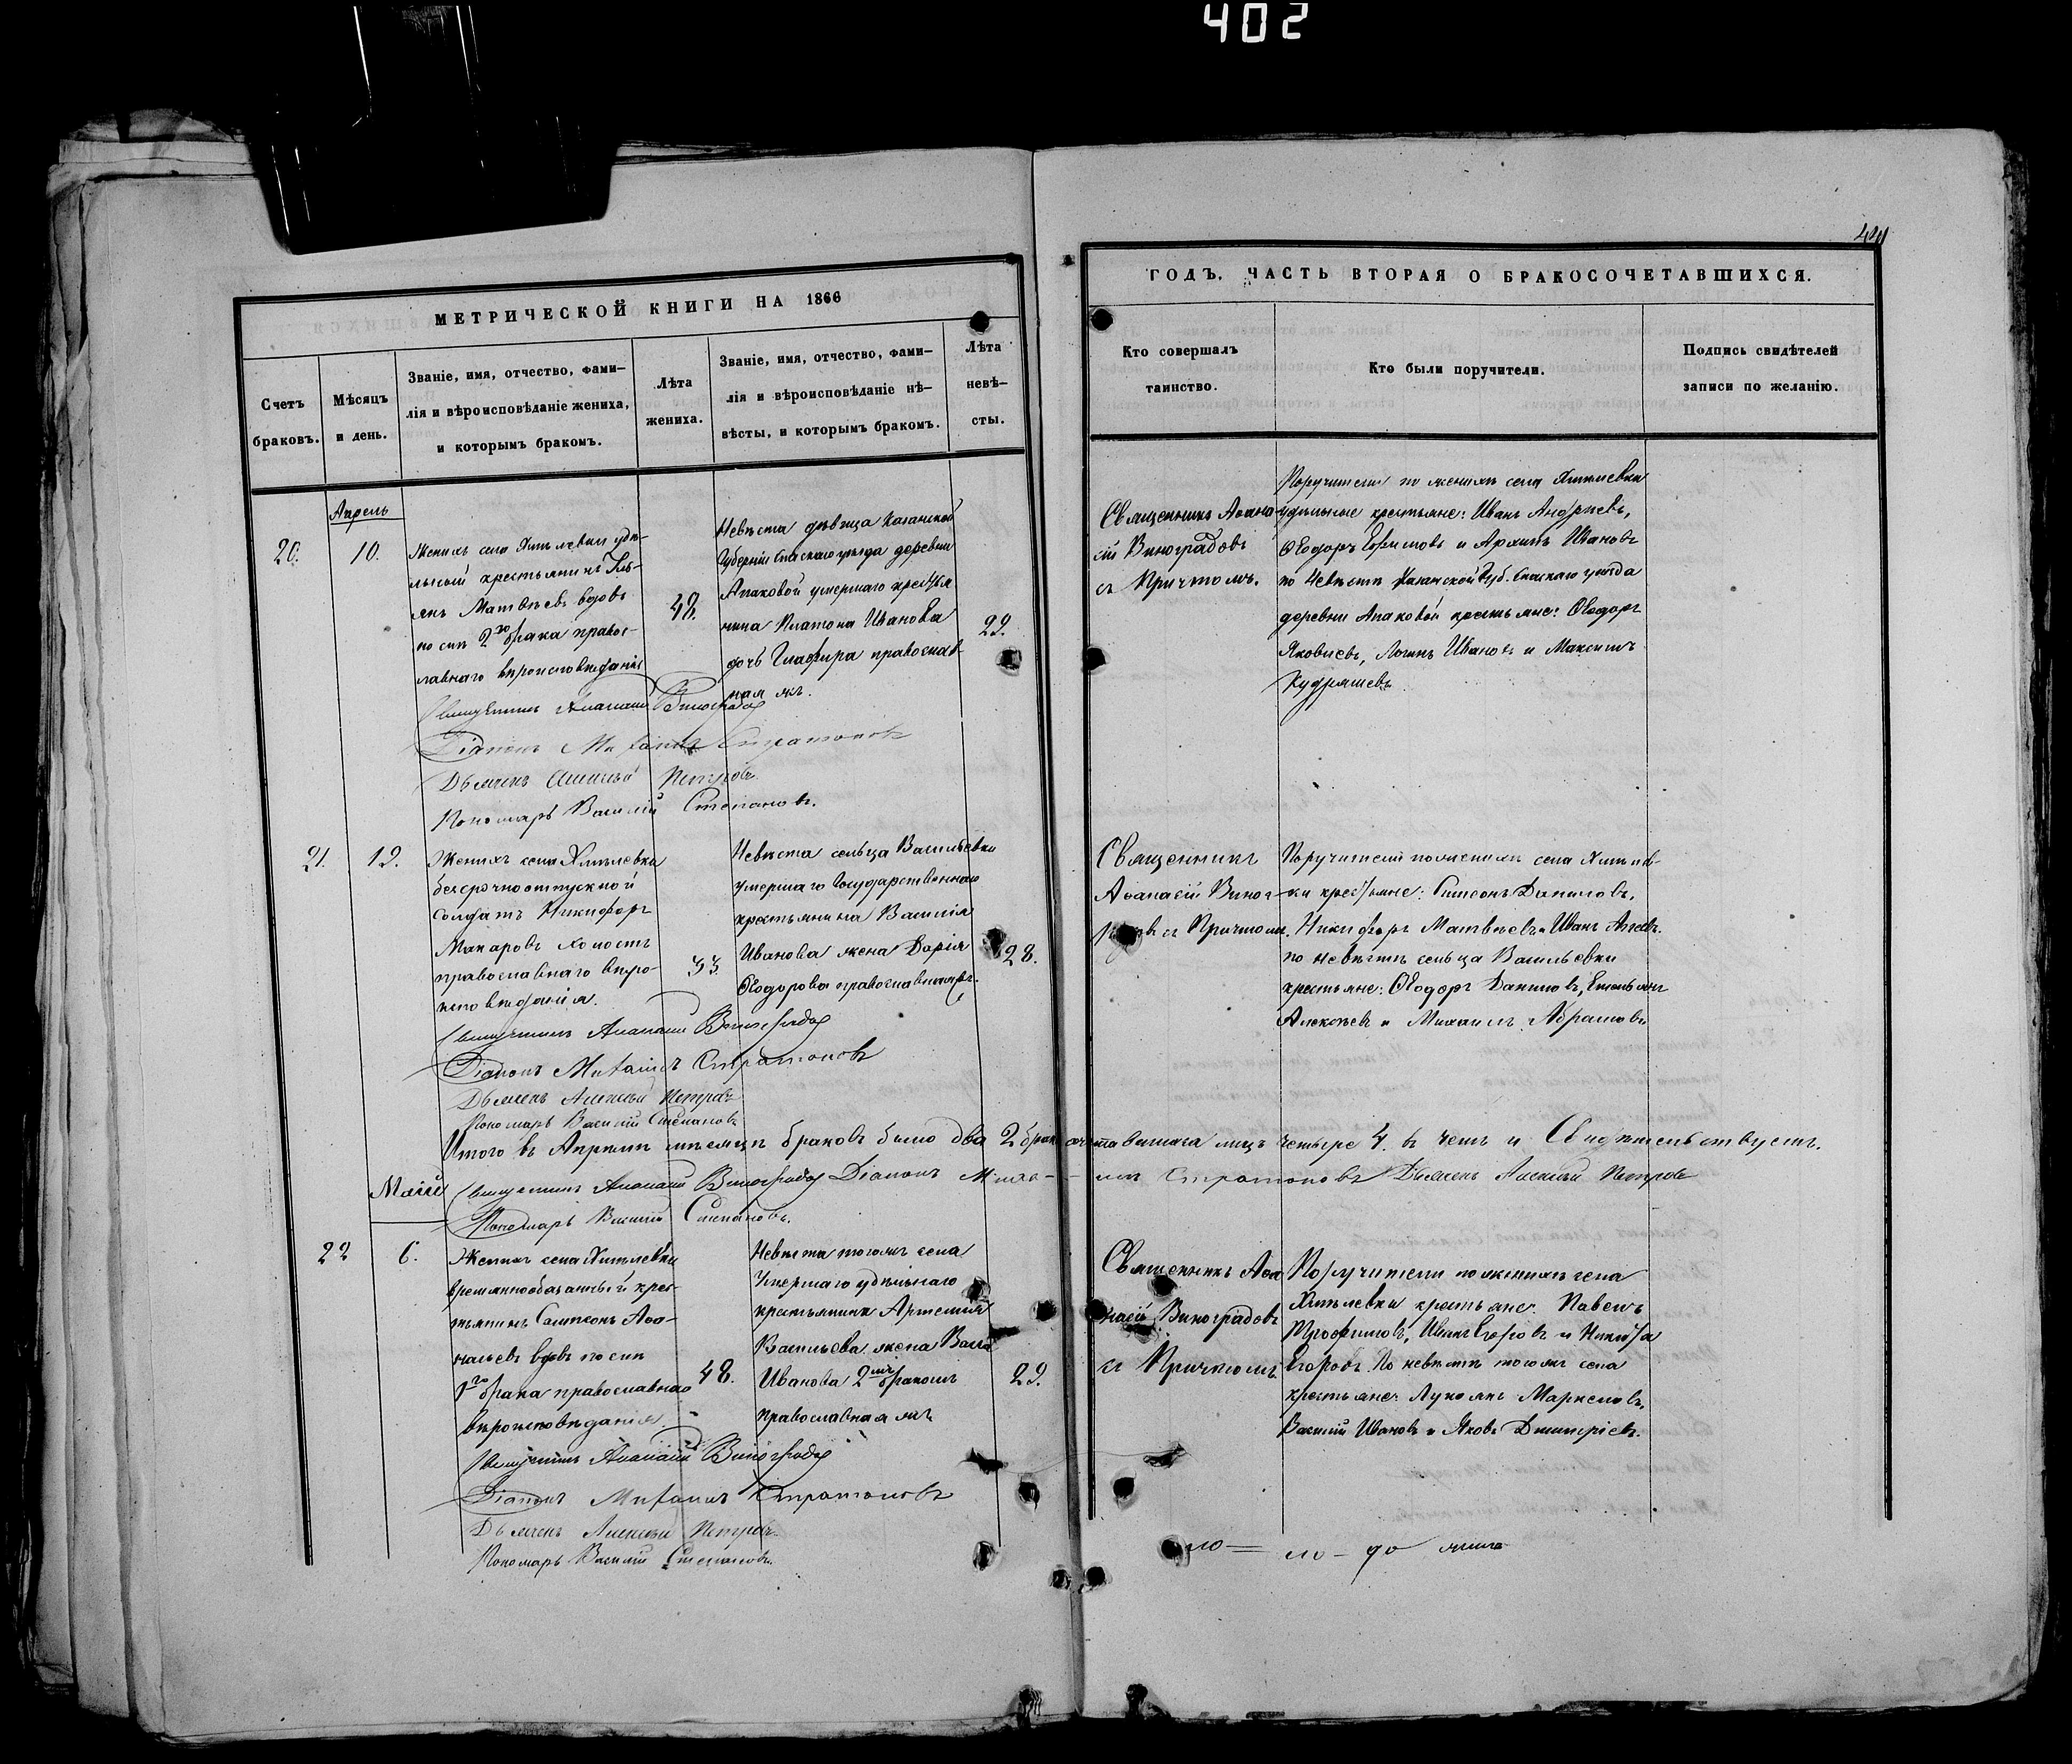 402
441
МЕТРИЧЕСКОЙ КНИГИ НА 1866
Счетъ
браковъ.
Мѣсяцъ
и день.
Званіе, имя, отчество, фами-
лія и вѣроисповѣданіе жениха,
и которымъ бракомъ.
Лѣта
жениха.
Званіе, имя, отчество, фами-
лія и вѣроисповѣданіе нѣ-
вѣсты, и которымъ бракомъ.
Лѣта
невѣ-
сты.
ГОДЪ. ЧАСТЬ ВТОРАЯ О БРАКОСОЧЕТАВШИХСЯ.
Кто совершалъ
таинство.
Кто были поручители.
Подпись свидѣтелей
записи по желанію.
Апрель
20.
10.
Женихъ села Хмѣлевки удѣ-
льный крестьянинъ
Матвѣевъ вдовъ
по сил 2го брака правос-
лавнаго вѣроисповѣданія
48.
Невѣста дѣвица Казанской
Губерніи Спаскаго уѣзда деревни
Апаковой умершаго крестья
нина Платона Иванова
дочь Глафира православ-
ная
22.
Священникъ Аѳана
сій Виноградовъ
съ Причтомъ.
Поручители по женихѣ села Хмѣлевки
удѣльные крестьяне: Иванъ Андреевъ,
Ѳеодоръ Ефимовъ и Архипъ Ивановъ
по Невѣстѣ Казанской Губ. Спаскаго уѣзда
деревни Апаковой крестьяне: Ѳеодоръ
Яковлевъ, Логинъ Ивановъ и Максимъ
Кудряшевъ
Священникъ Аѳанасій Виноградов
Діаконъ Михаилъ Стратоновъ
Дьячекъ Алексѣй Петровъ
Пономарь Василій Степановъ.
21.
19.
Женихъ села Хмѣлевки
безсрочноотпускной
солдатъ Никифоръ
Макаровъ холостъ
православнаго вѣро-
исповѣданія.
33.
Невѣста сельца Васильевки
умершаго Государственнаго
крестьянина Василія
Иванова жена Дарія
Ѳеодорова православная
28.
Священникъ
Аѳанасій Виног-
съ Причтомъ.
Поручители по женихѣ села Хмѣлев-
ки крестьяне: Симеонъ Даниловъ,
Никифоръ Матвѣевъ и Иванъ
по невѣстѣ сельца Васильевки
крестьяне: Ѳеодоръ Даниловъ, Емельянъ
Алексѣевъ и Михаилъ Абрамовъ
Священникъ Аѳанасій Виноградов
Діаконъ Михаилъ Стратоновъ
Дьячекъ Алексѣй Петровъ
Пономарь Василій Степановъ
Итого въ Апрелѣ мѣсяцѣ браковъ было два 2 бракосочетавшихся лицъ четыре 4. въ чемъ и Свидѣтельствуетъ.
Маій
Священникъ Аѳанасій Виноградов Діаконъ Михаилъ Стратоновъ Дьячекъ Алексѣй Петровъ
Пономарь Василій Степановъ.
22
6.
Женихъ села Хмѣлевки
временнообязанный крес-
тьянинъ Сампсонъ Аѳа-
насьевъ вдовъ по сил
1го брака православнаго
вѣроисповѣданія.
48.
Невѣста тогожъ села
Умершаго удѣльнаго
крестьянина Артемія
Васильева жена Васса
Иванова 2мъ бракомъ
православная
29.
Священникъ Аѳа
насій Виноградовъ
съ Причтомъ.
Поручители по женихѣ села
Хмѣлевки крестьяне: Павелъ
Трофимовъ, Иванъ Егоровъ и Никита
Егоровъ. По невѣстѣ тогожъ села
крестьяне: Лукоянъ Маркеловъ,
Василій Ивановъ и Яковъ Дмитріевъ.
Священникъ Аѳанасій Виноградов
Діаконъ Михаилъ Стратоновъ
Дьячекъ Алексѣй Петровъ.
Пономарь Василій Степановъ.